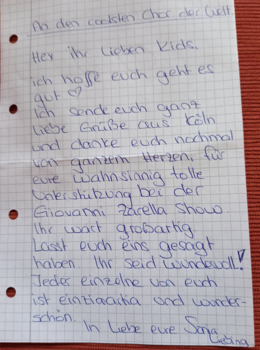 An den coolsten Chor der Welt.
Hey ihr lieben Kids,
ich hoffe euch geht es
gut ♡
Ich sende euch ganz
liebe Grüße aus Köln
und danke euch nochmal
von ganzem Herzen, für
eure wahnsinnig tolle
Unterstützung bei der
Giovanni Zarella Show
Ihr wart großartig
Lasst euch eins gesagt
haben Ihr seid wundervoll!
Jeder einzelne von euch
ist einzigartig und wunder-
schön.
In Liebe eure